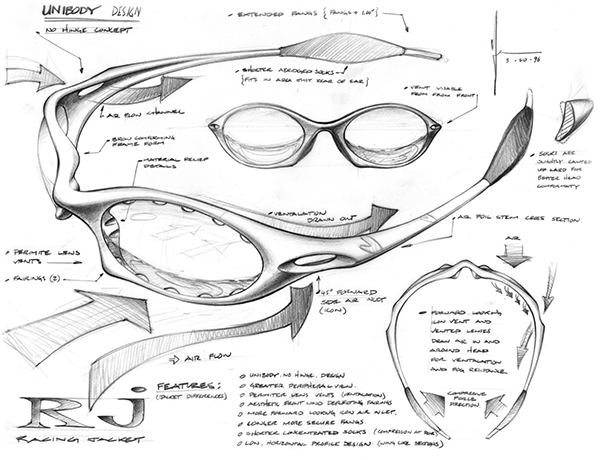 UNIBODY DESIGN
NO HINGE CONCEPT
EXTENDED FANGS { FANGS + 1/4" }
3 - 20 - 96
SHORTER ABRIDGED SOCKS
{ FITS IN AREA JUST REAR OF EAR }
VENT VISABLE
FROM FRONT
AIR FLOW CHANNEL
BROW CONFORMING
FRAME FORM
MATERIAL RELIEF
DETAILS
SOCKS ARE
SLIGHTLY CANTED
UP WARD FOR
BETTER HEAD
CONFORMITY
VENTALATION
DRAWN OUT
AIR FOIL STEM CROSS SECTION.
AIR
PERIMITE LENS
VENTS
FAIRINGS (2)
45° FORWARD
SIDE AIR INLET
(ICON)
FORWARD LOOKING
ICON VENT AND
VENTED LENSES
DRAW AIR IN AND
AROUND HEAD
FOR VENTALATION
AND FOG RESISTANCE.
AIR FLOW
COMPRESSIVE
FORCES
DIRECTION
RJ
RACING JACKET
FEATURES:
(JACKET DIFFERENCES)
UNIBODY. NO HINGE. DESIGN
GREATER PERIPHERAL VIEW.
PERIMETER LENS VENTS (VENTALATION)
AESTHETIC FRONT WIND DEFLECTING FAIRING
MORE FORWARD LOOKING ICON AIR INLET.
LONGER MORE SECURE FANGS.
SHORTER CONCENTRATED SOCKS (COMPRESSION AT REAR)
LOW. HORIZONTAL PROFILE DESIGN (WING LIKE SECTIONS)